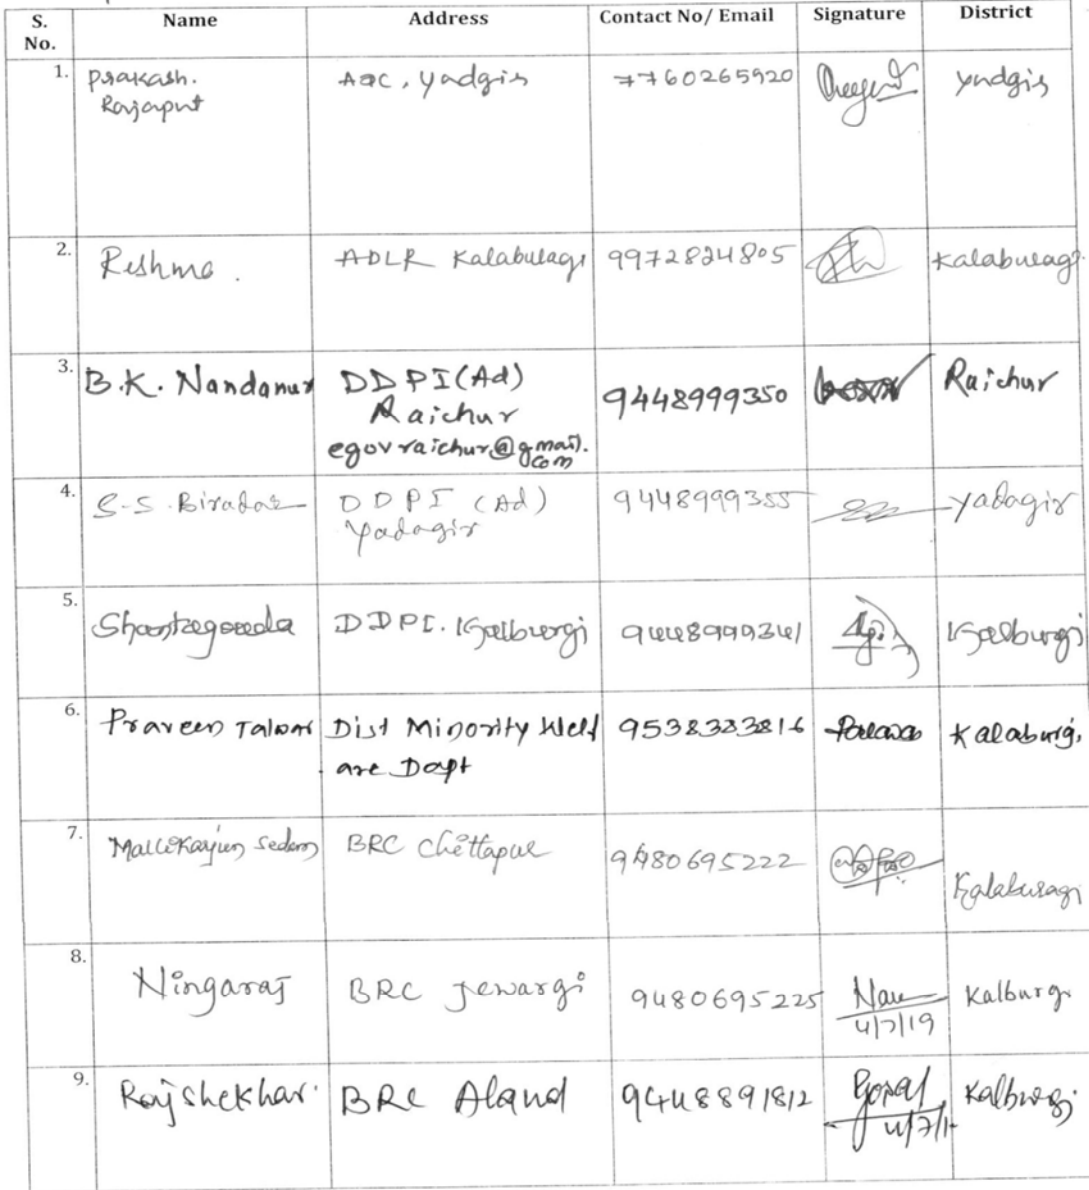 S. No. Name Address Contact No/ Email Signature District
1. Prakash. Rajaput AQC, Yadgir 7760265920 Yadgir
2. Reshma. ADLR Kalabulagi 9972824805 Kalaburagi
3. B.K. Nandanur DDPI(Ad) Raichur egovraichur@gmail.com 9448999350 Raichur
4. S-S. Biradar DDPI (Ad) Yadagir 9448999355 Yadagir
5. Shantagouda DDPI. Kalburgi 9448999341 Kalburgi
6. Praveen Talwar Dist Minority Welf are Dept 9538383816 Kalaburgi
7. Mallikarjun Sedam BRC Chittapur 9480695222 Kalaburagi
8. Ningaraj BRC Jewargi 9480695225 4/7/19 Kalburgi
9. Rajshekhar. BRC Aland 9448891812 4/7/1 Kalburgi